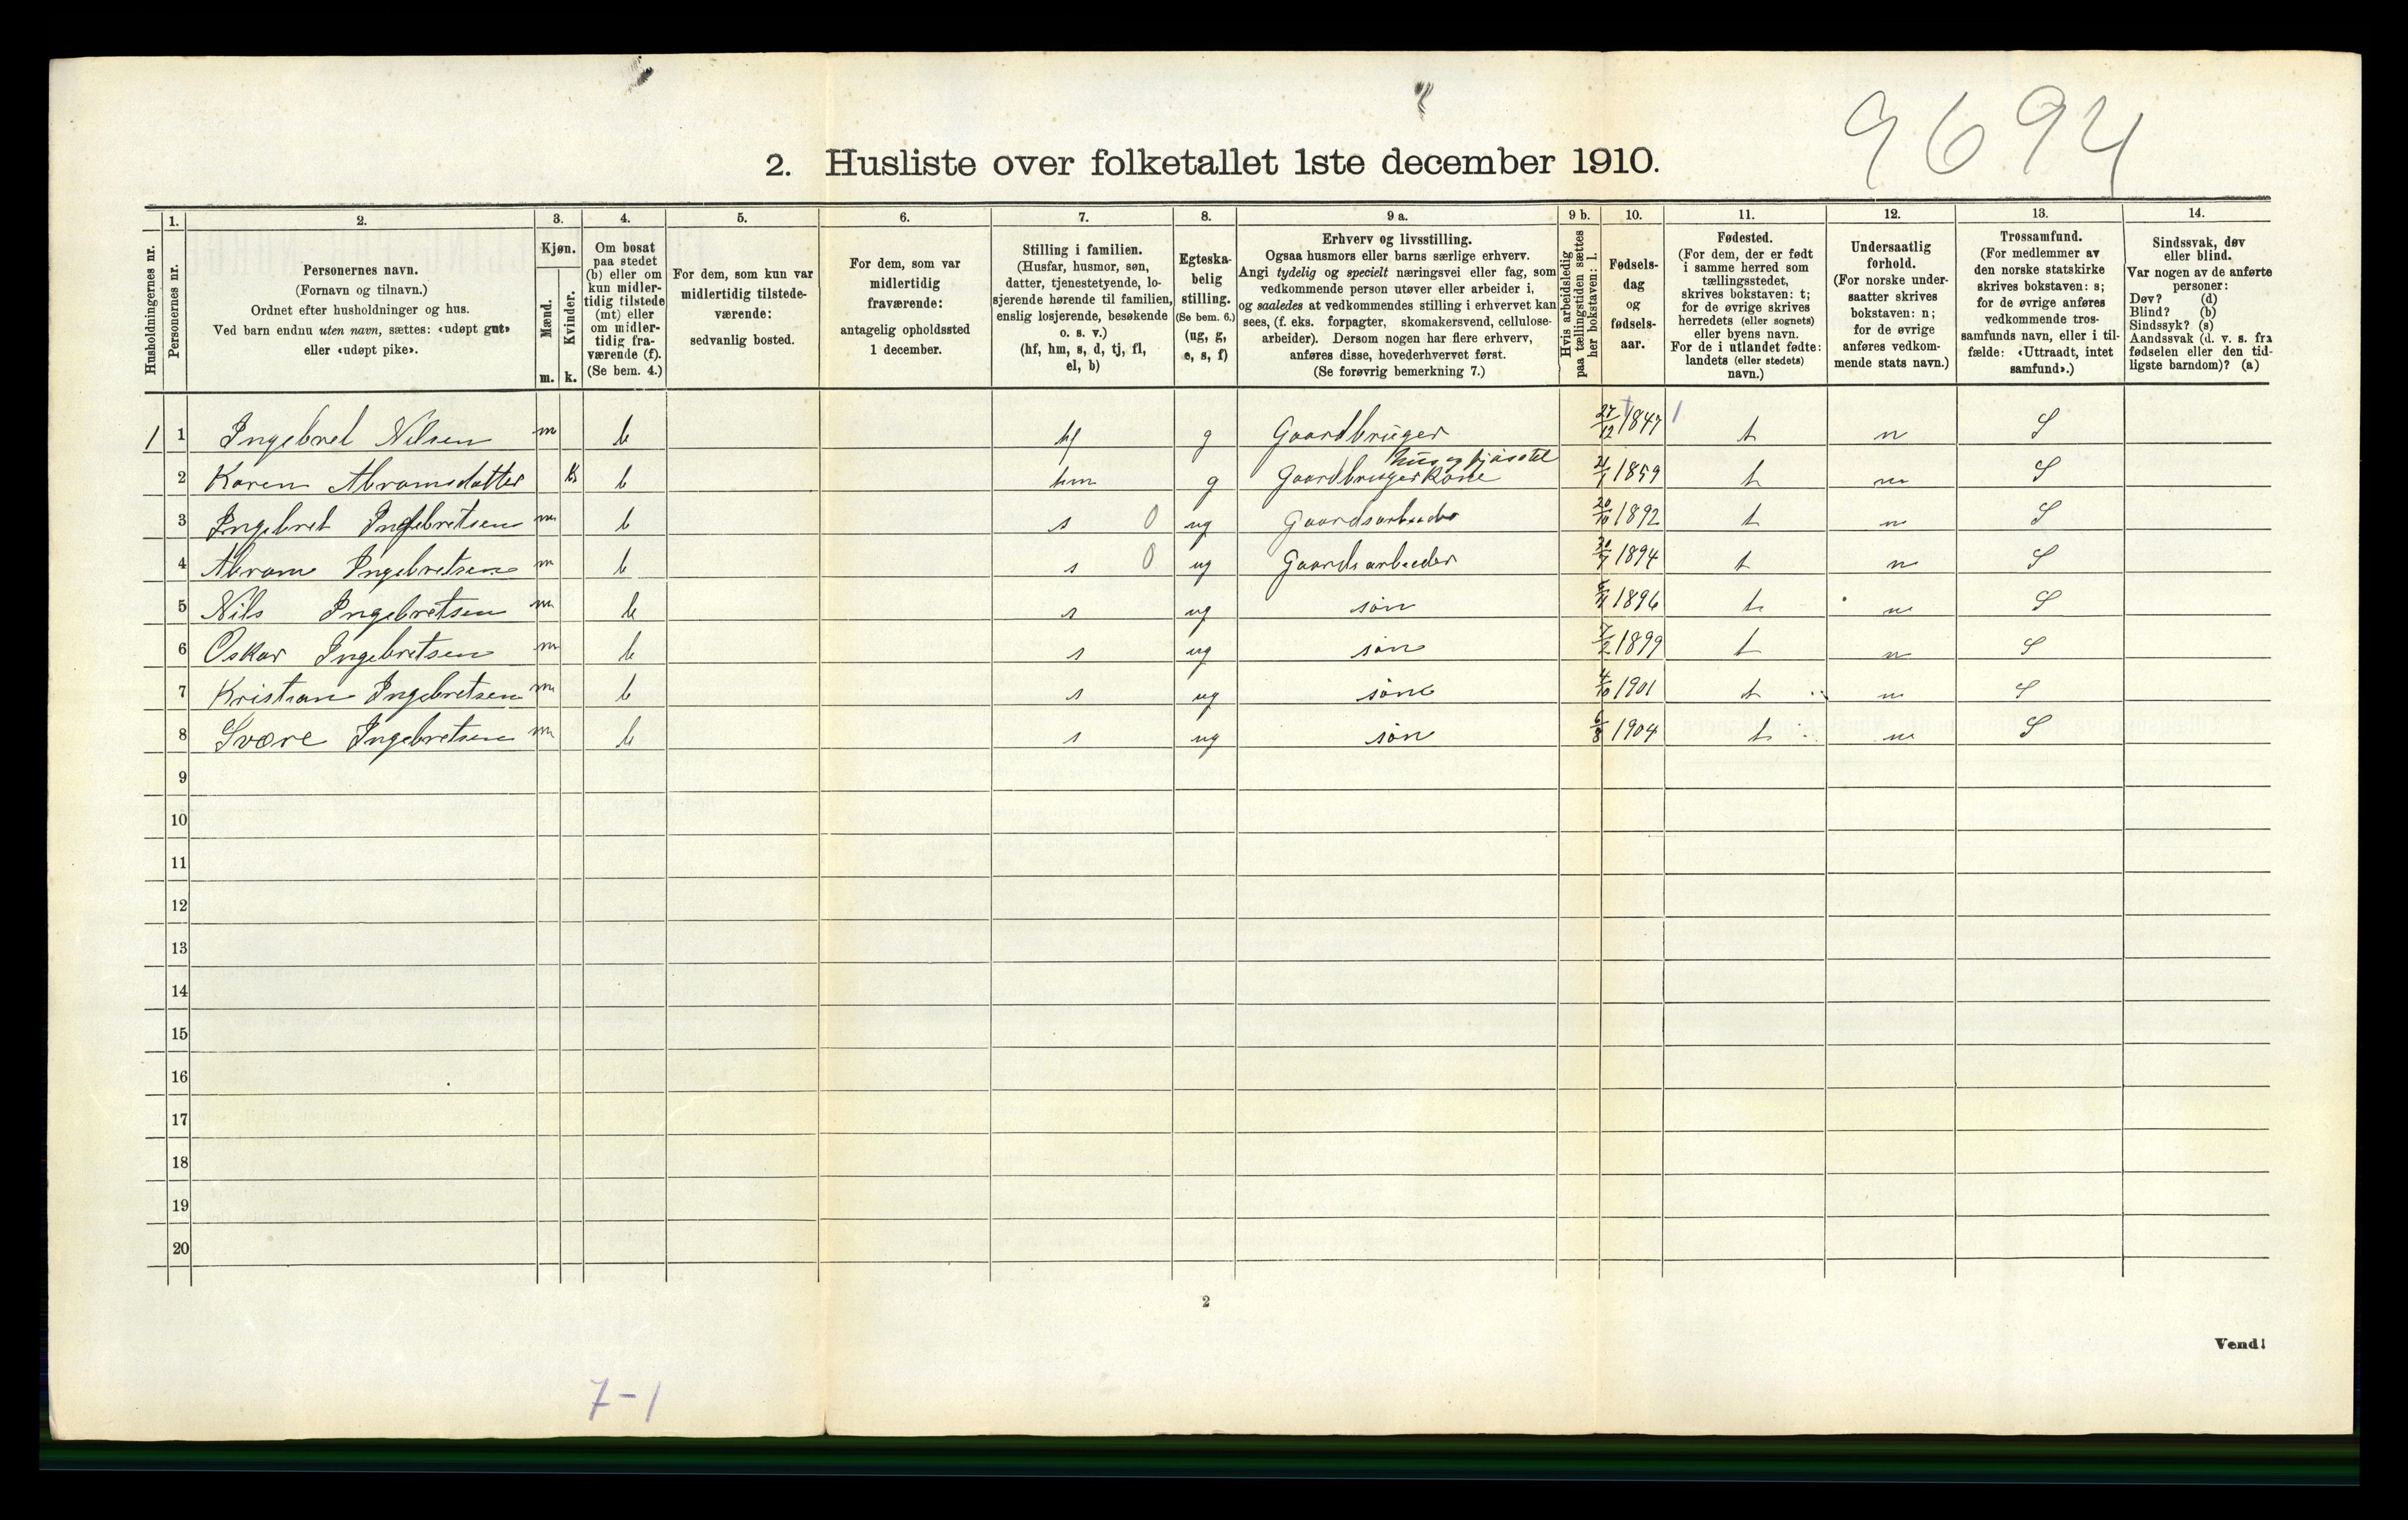 9694
2. Husliste over folketallet 1ste december 1910.
Husholdningernes nr.
1.
Personernes nr.
2.
Personernes navn.
(Fornavn og tilnavn.)
Ordnet efter husholdninger og hus.
Ved barn endnu uten navn, sættes: «udøpt gut»
eller «udøpt pike».
3.
Kjøn.
Mænd.
m.
Kvinder.
k.
4.
Om bosat
paa stedet
(b) eller om
kun midler-
tidig tilstede
(mt) eller
om midler-
tidig fra-
værende (f).
(Se bem. 4.)
5.
For dem, som kun var
midlertidig tilstede-
værende:
sedvanlig bosted.
6.
For dem, som var
midlertidig
fraværende:
antagelig opholdssted
1 december.
7.
Stilling i familien.
(Husfar, husmor, søn,
datter, tjenestetyende, lo-
sjerende hørende til familien,
enslig losjerende, besøkende
o. s. v.)
(hf, hm, s, d, tj, fl,
el, b)
8.
Egteska-
belig
stilling.
(Se bem. 6.)
(ug, g,
e, s, f)
9 a.
Erhverv og livsstilling.
Ogsaa husmors eller barns særlige erhverv.
Angi tydelig og specielt næringsvei eller fag, som
vedkommende person utøver eller arbeider i,
og saaledes at vedkommendes stilling i erhvervet kan
sees, (f. eks. forpagter, skomakersvend, cellulose-
arbeider). Dersom nogen har flere erhverv,
anføres disse, hovederhvervet først.
(Se forøvrig bemerkning 7.)
9 b.
Hvis arbeidsledig
paa tællingstiden sættes
her bokstaven: l.
10.
Fødsels-
dag
og
fødsels-
aar.
11.
Fødested.
(For dem, der er født
i samme herred som
tællingsstedet,
skrives bokstaven: t;
for de øvrige skrives
herredets (eller sognets)
eller byens navn.
For de i utlandet fødte:
landets (eller stedets)
navn.)
12.
Undersaatlig
forhold.
(For norske under-
saatter skrives
bokstaven: n;
for de øvrige
anføres vedkom-
mende stats navn.)
13.
Trossamfund.
(For medlemmer av
den norske statskirke
skrives bokstaven: s;
for de øvrige anføres
vedkommende tros-
samfunds navn, eller i til-
fælde: «Uttraadt, intet
samfund».)
14.
Sindssvak, døv
eller blind.
Var nogen av de anførte
personer:
Døv? (d)
Blind? (b)
Sindssyk? (s)
Aandssvak (d. v. s. fra
fødselen eller den tid-
ligste barndom)? (a)
1 1 Ingebret Nilsen m b hf g Gaardbruger 27/12 1847 t n S
hus og fjøsstel
2 Karen Abramsdatter k b hm g Gaardbrugerkone 1859 t n S
3 Ingebret Ingebretsen m b s 0 ug Gaardsarbeider 20/10 1892 t n S
4 Abram Ingebretsen m b s 0 ug Gaardsarbeider 1894 t n S
5 Nils Ingebretsen m b s ug søn 1896 t n S
6 Oskar Ingebretsen m b s ug søn 7/2 1899 t n S
7 Kristian Ingebretsen m b s ug søn 4/10 1901 t n S
8 Svære Ingebretsen m b s ug søn 6/8 1904 t n S
9
10
11
12
13
14
15
16
17
18
19
20
2
Vend!
7-1